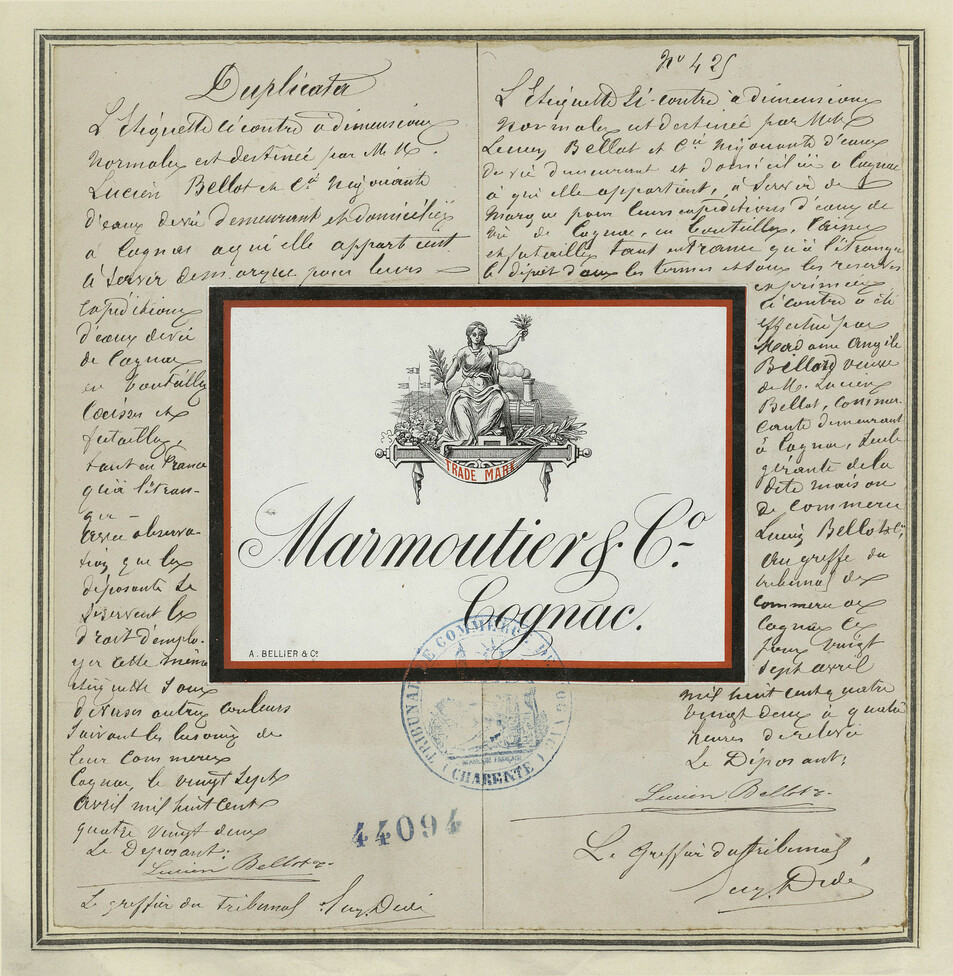 Duplicata
L'Etiquette ci contre à dimensions
normales est destinée par M. M.
Lucien Bellot et Cie négociants
d'eaux de vie demeurant et domiciliés
à Cognac à qui elle appartient
à servir de marque pour leurs
expéditions
d'eaux de vie
de Cognac
en bouteilles
caisses et
futailles,
tant en France
qu'à l'étran-
ger —
observa-
tion que les
déposants se
réservent le
droit d'emplo-
yer cette même
etiquette sous
diverses autres couleurs
suivant les besoins de
leur commerce
Cognac, le vingt sept
avril mil huit cent
quatre vingt deux
Le Déposant:
Lucien Bellot & Cie
Le greffier du tribunal Aug. Dedé
No 425
L'Etiquette ci-contre à dimensions
normales est destinée par M. M.
Lucien Bellot et Cie négociants d'eaux
de vie demeurant et domiciliés à Cognac
à qui elle appartient, à servir de
marque pour leurs expéditions d'eaux de
vie de Cognac, en bouteilles, caisses
et futailles tant en France qu'à l'étranger
le dépôt dans les termes et sous les réserves
exprimées
ci contre a été
effectué par
Madame Angèle
Billard veuve
de M. Lucien
Bellot, commer-
çante demeurant
à Cognac, seule
gérante de la
dite maison
de commerce
Lucien Bellot & Cie,
au greffe du
tribunal de
commerce de
Cognac ce
jour vingt
sept avril
mil huit cent quatre
vingt deux à quatre
heures de relevée
Le Déposant:
Lucien Bellot & Cie
Le Greffier du tribunal
Aug. Dedé
TRADE MARK
Marmoutier & Co
Cognac.
A. BELLIER & Co
TRIBUNAL DE COMMERCE DE COGNAC
(CHARENTE)
44094